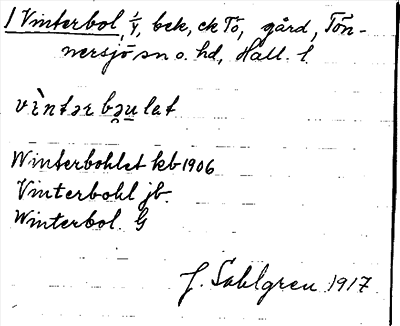 1 Vinterbol, 1/4, bek, ck Tö, gård, Tön-
nersjö sn o. hd, Hall. l.
vìntər bəu̯lət
Winterbohlet kb 1906
Vinterbohl jb.
Winterbol. G
J. Sahlgren 1917